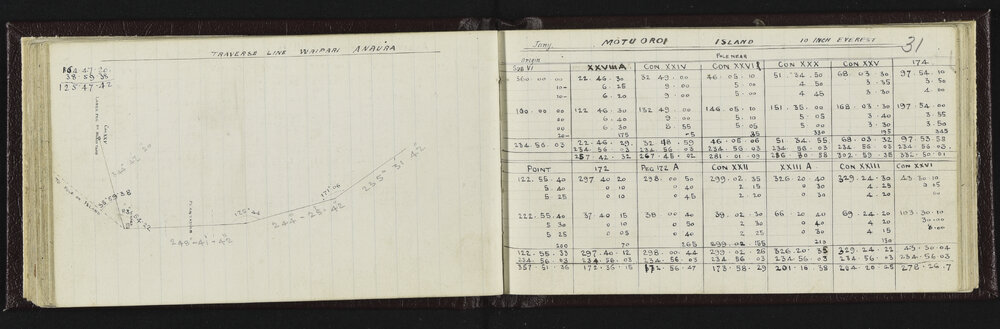 TRAVERSE LINE WAIPARI ANAURA
164 47 20
38 59 38
125-47-42
235° 31 42
171°06
125°44
244-25-42
248-41-42
38 59 38
Jany. MOTUOROI ISLAND 10 INCH EVEREST 31
Origin POLE NEAR
Syd VI XXVIII A CON XXIV CON XXVI CON XXX CON XXV 174
360 00 00 22.46.30 32 49.00 46.05.10 51.34.50 68.03.30 97.54.10
10- 6.25 9.00 5.00 4 50 3.35 3.50
10- 6.20 9.00 5.00 4 45 3.30 4.00
180.00.00 122 46.30 132 49.00 146.05.10 151.35.00 168.03.30 197 54.00
00 6.40 9.00 5.10 5.05 3.40 3.35
00 6.30 8.55 5.05 5 00 3.30 3.50
20- 175 -5 35 330 195 345
234.56.03 22.46.29 32 48.59 46.05.06 51.34.55 68.03 32 97.53.58
234.56.03 234 56 03 234.56.03 234 56.03 234 56 03 234.56.03
257.42.32 267.45.02 281.01.09 286 30 58 302.59.35 332.50.01
POINT 172 PEG 172 A CON XXII XXIII A CON XXIII CON XXVI
122.55.40 297 40 20 298.00 50 299.02.35 326.20.40 329.24.30 49.30.10
5 40 0 10 0 40 2 15 0 30 4.25 0 15
5 25 0 10 0 45 2 20 0 30 4.20 00
222.55.40 37.40 15 38 00 40 39.02.30 66 20 40 69.24.20 103.30.10
5 30 0 10 0 50 2 30 0 40 4 20 30.00
5 25 0 05 0 40 2 25 0 30 4.15
200 70 265 155 210 130
122.55.33 297.40.12 298.00 44 299.02.26 326.20.35 329.24.22 49.30 04
234.56 03 234.56 03 234.56 03 234.56 03 234.56 03 234.56.03 234.56 03
357.51.36 172.36.15 172.56.47 173.58.29 201.16.38 204.20.25 278.26.7